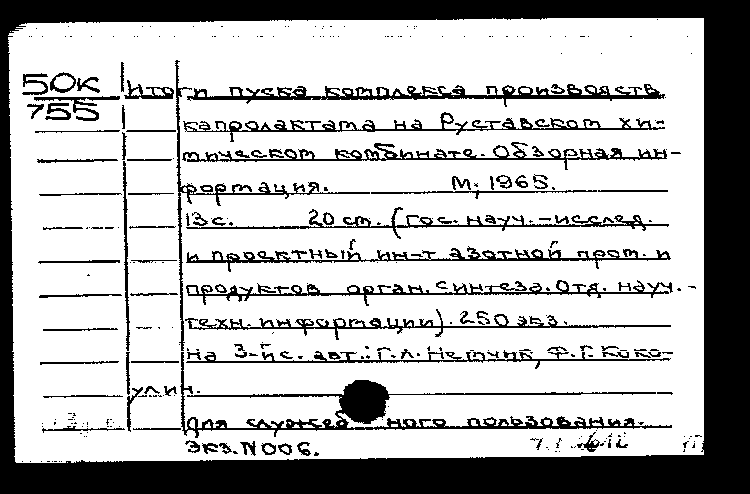 50к
755
Итоги пуска комплекса производств
капролактама на Руставском хи-
мическом комбинате. Обзорная ин-
формация. М., 1965.
13 с. 20 см. (Гос. науч.-исслед.
и проектный ин-т азотной пром. и
продуктов орган. синтеза. Отд. науч.-
техн. информации). 250 экз.
На 3-й с. авт.: Г.Л. Немчик, Ф.Г. Коко-
улин.
Для служебного пользования.
Экз. N006.